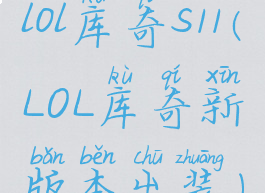 lol库奇S11(
kù qí xīn
LOL库奇新
bǎn běn chū zhuāng
版本出装)